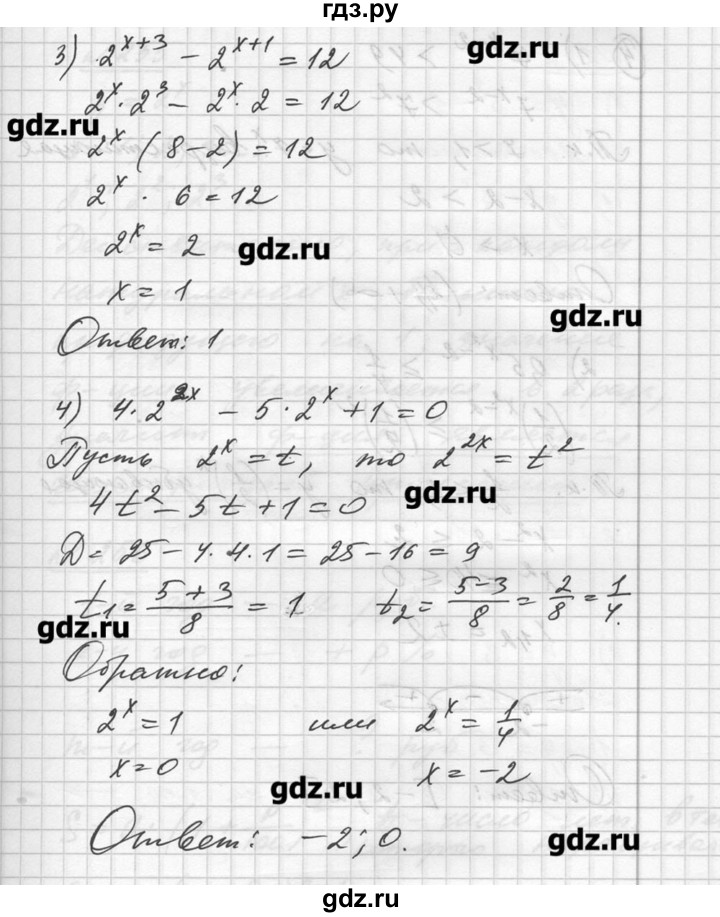 гдз.ру
3) 2^{x+3} − 2^{x+1} = 12
gdz.ru
2^x · 2^3 − 2^x · 2 = 12
gdz.ru
2^x (8−2) = 12
2^x · 6 = 12
2^x = 2
gdz.ru
x = 1
gdz.ru
Ответ: 1
4) 4·2^{2x} − 5·2^x + 1 = 0
Пусть 2^x = t, то 2^{2x} = t^2
gdz.ru
4t^2 − 5t + 1 = 0
D = 25 − 4·4·1 = 25 − 16 = 9
t_1 = \frac{5+3}{8} = 1 t_2 = \frac{5−3}{8} = \frac{2}{8} = \frac{1}{4}.
gdz.ru
Обратно:
2^x = 1 или 2^x = \frac{1}{4}
x = 0 x = −2
gdz.ru
Ответ: −2; 0.
gdz.ru
gdz.ru